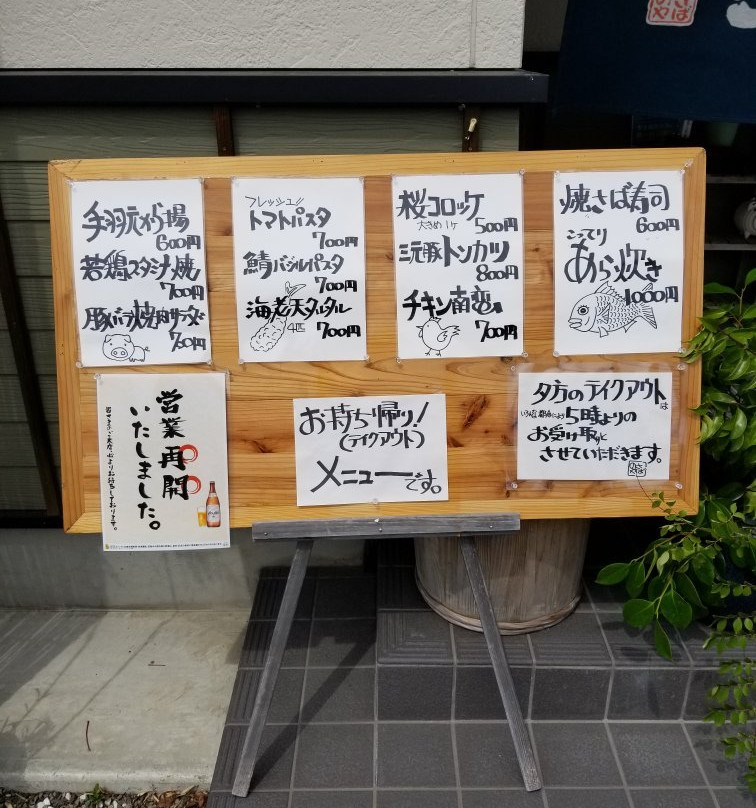 手羽元から揚
600円
若鶏スタミナ焼
700円
豚バラ焼肉サラダ
700円
フレッシュ!!
トマトパスタ
700円
鯖バジルパスタ
700円
海老天タルタル
4匹
700円
桜コロッケ
大きめ1ヶ
500円
三元豚トンカツ
800円
チキン南蛮
700円
焼さば寿司
600円
こってり
あら炊き
1000円
営業再開
いたしました。
皆さまのご来店、心よりお待ちしております。
お持ち帰り!
(テイクアウト)
メニューです。
夕方のテイクアウトは
5時よりの
お受け取りと
させていただきます。